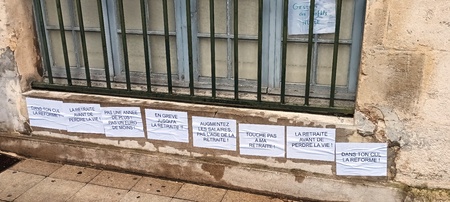 DANS TON CUL
LA REFORME !
LA RETRAITE
AVANT DE
PERDRE LA VIE !
PAS UNE ANNEE
DE PLUS !
PAS UN EURO
DE MOINS !
EN GREVE
JUSQU'A
LA RETRAITE !
AUGMENTEZ
LES SALAIRES,
PAS L'AGE DE LA
RETRAITE !
TOUCHE PAS
A MA
RETRAITE !
LA RETRAITE
AVANT DE
PERDRE LA VIE !
DANS TON CUL
LA REFORME !